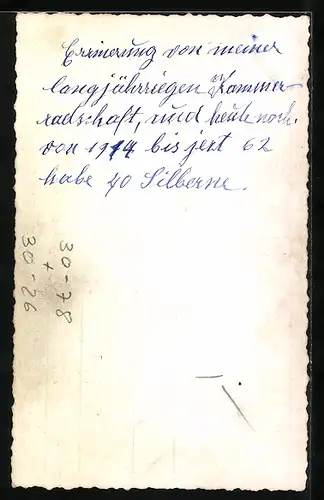 Errinerung von meiner
langjährriegen Kammer-
radschaft, und heute noch.
von 1914 bis jext 62
habe 40 Silberne.
30-78
+
30-26